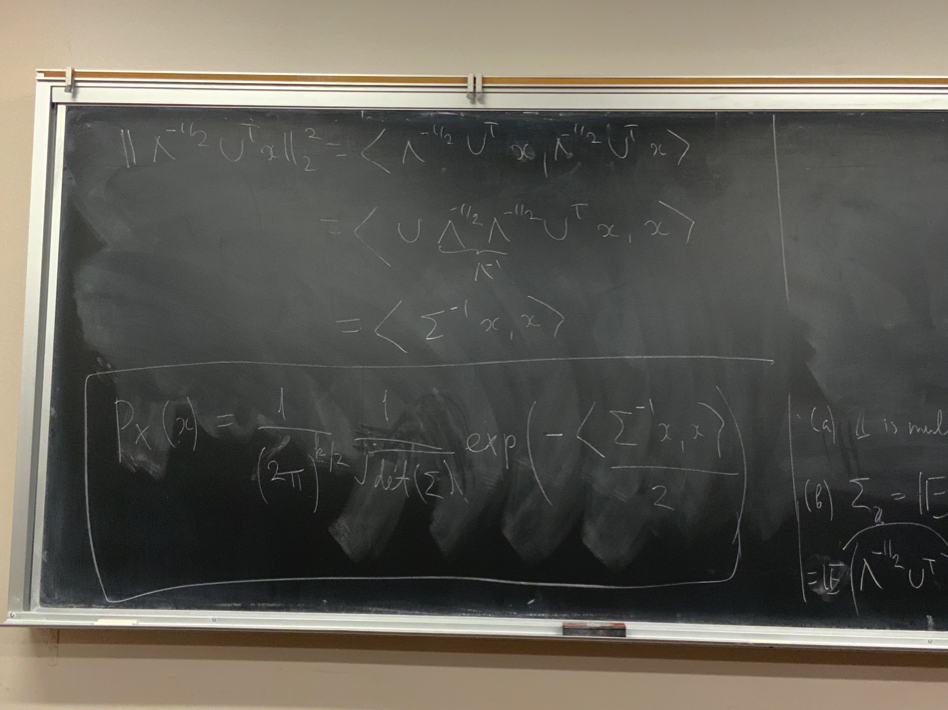 ‖ Λ^{-1/2} U^T x ‖_2^2 = ⟨ Λ^{-1/2} U^T x, Λ^{-1/2} U^T x ⟩
= ⟨ U Λ^{-1/2} Λ^{-1/2} U^T x, x ⟩
Λ^{-1}
= ⟨ Σ^{-1} x, x ⟩
P_X(x) = 1/(2π)^{/2} 1/√det(Σ) exp( - ⟨ Σ^{-1} x, x ⟩ / 2 )
(a) is
(b) Σ = IE
= IE (Λ^{-1/2} U^T